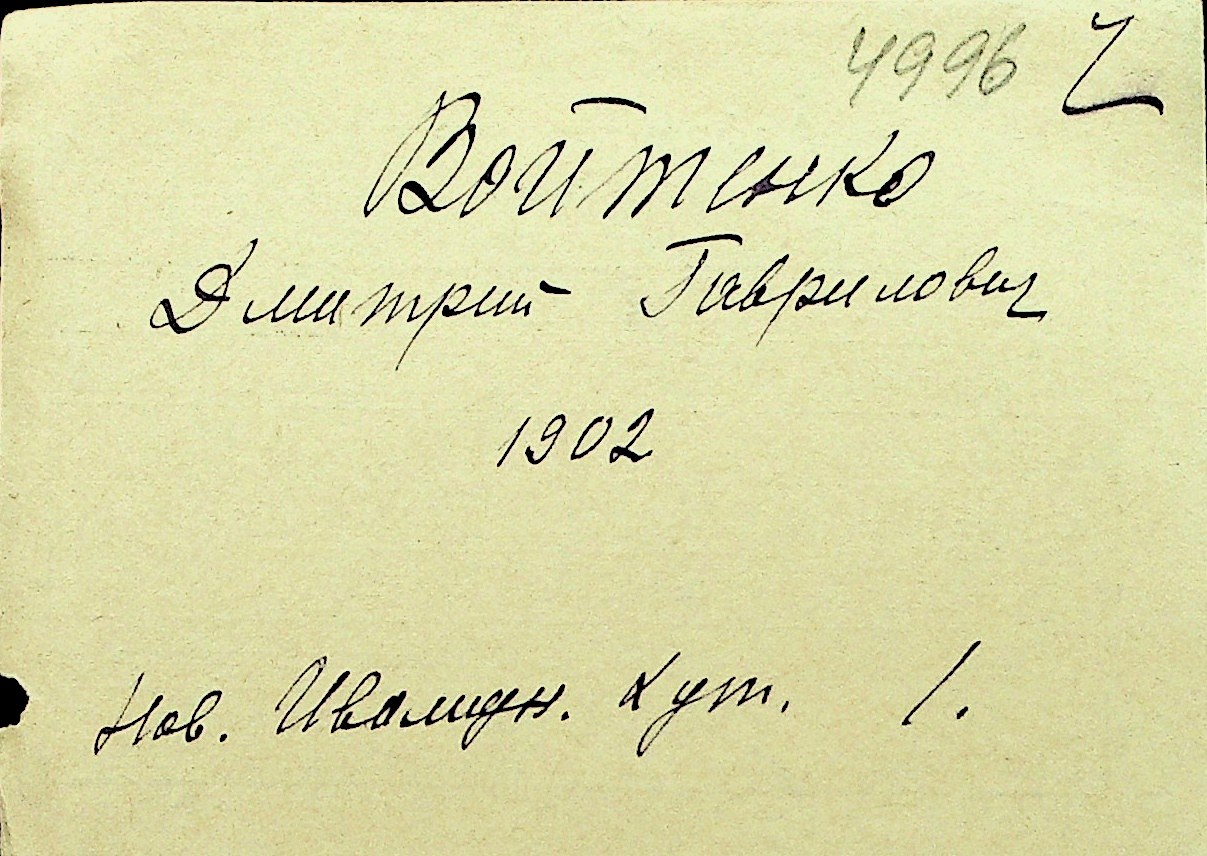 4996
Войтенко
Дмитрий Гаврилович
1902
Нов. хут. 1.